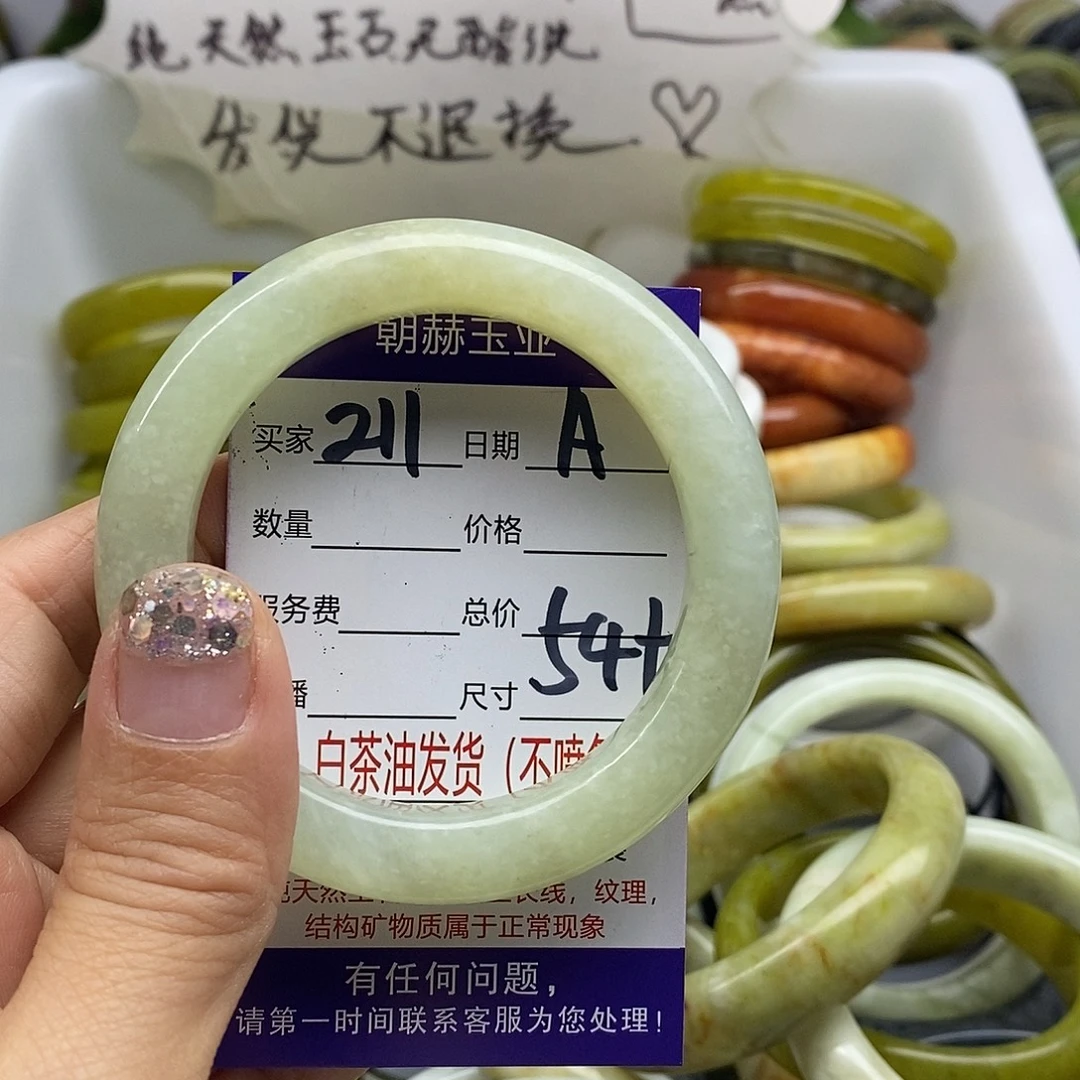 纯天然玉石无酸洗
售货不退换
朝赫玉业
买家 211 日期 A
数量 价格
服务费 总价 54+
播 尺寸
白茶油发货（不喷
天然 长线，纹理，
结构矿物质属于正常现象
有任何问题，
请第一时间联系客服为您处理！